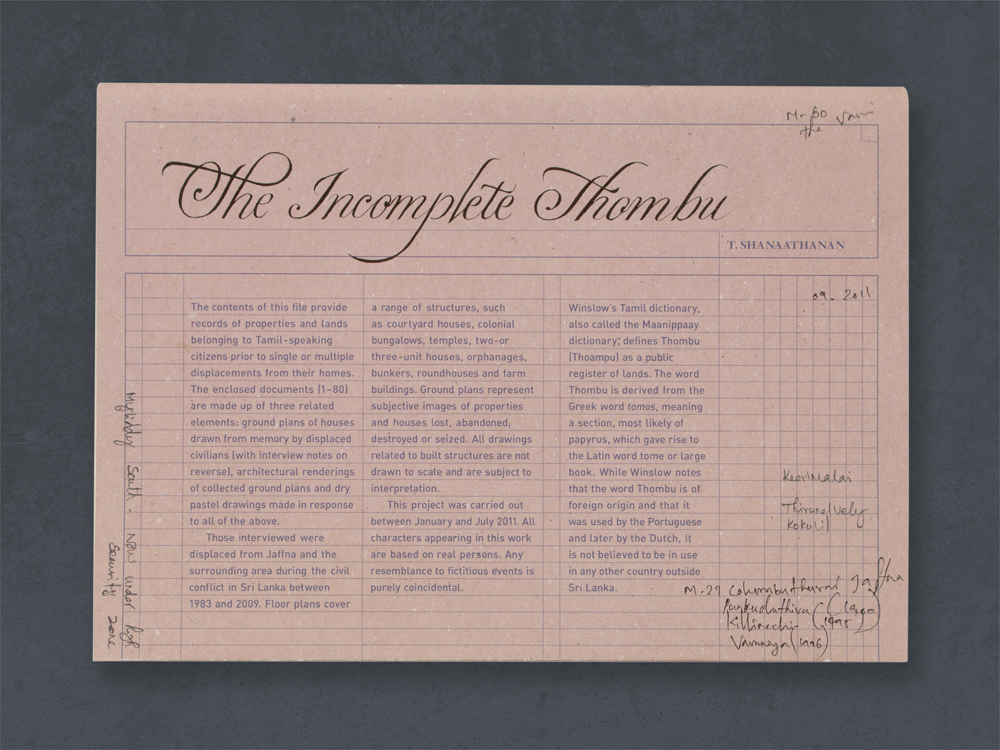 M-60
the
The Incomplete Thombu
T. SHANAATHANAN
09-2011
The contents of this file provide
records of properties and lands
belonging to Tamil-speaking
citizens prior to single or multiple
displacements from their homes.
The enclosed documents (1–80)
are made up of three related
elements: ground plans of houses
drawn from memory by displaced
civilians (with interview notes on
reverse), architectural renderings
of collected ground plans and dry
pastel drawings made in response
to all of the above.
Those interviewed were
displaced from Jaffna and the
surrounding area during the civil
conflict in Sri Lanka between
1983 and 2009. Floor plans cover
a range of structures, such
as courtyard houses, colonial
bungalows, temples, two-or
three-unit houses, orphanages,
bunkers, roundhouses and farm
buildings. Ground plans represent
subjective images of properties
and houses lost, abandoned,
destroyed or seized. All drawings
related to built structures are not
drawn to scale and are subject to
interpretation.
This project was carried out
between January and July 2011. All
characters appearing in this work
are based on real persons. Any
resemblance to fictitious events is
purely coincidental.
Winslow's Tamil dictionary,
also called the Maanippaay
dictionary, defines Thombu
(Thoampu) as a public
register of lands. The word
Thombu is derived from the
Greek word tomos, meaning
a section, most likely of
papyrus, which gave rise to
the Latin word tome or large
book. While Winslow notes
that the word Thombu is of
foreign origin and that it
was used by the Portuguese
and later by the Dutch, it
is not believed to be in use
in any other country outside
Sri Lanka.
KeeriMalai
Thirunelvely
Kokuvil
M-27 Columbuthurai Jaffna
(1990)
Killinochi (1995)
Vavuneya (1996)
South. Now under high
security zone